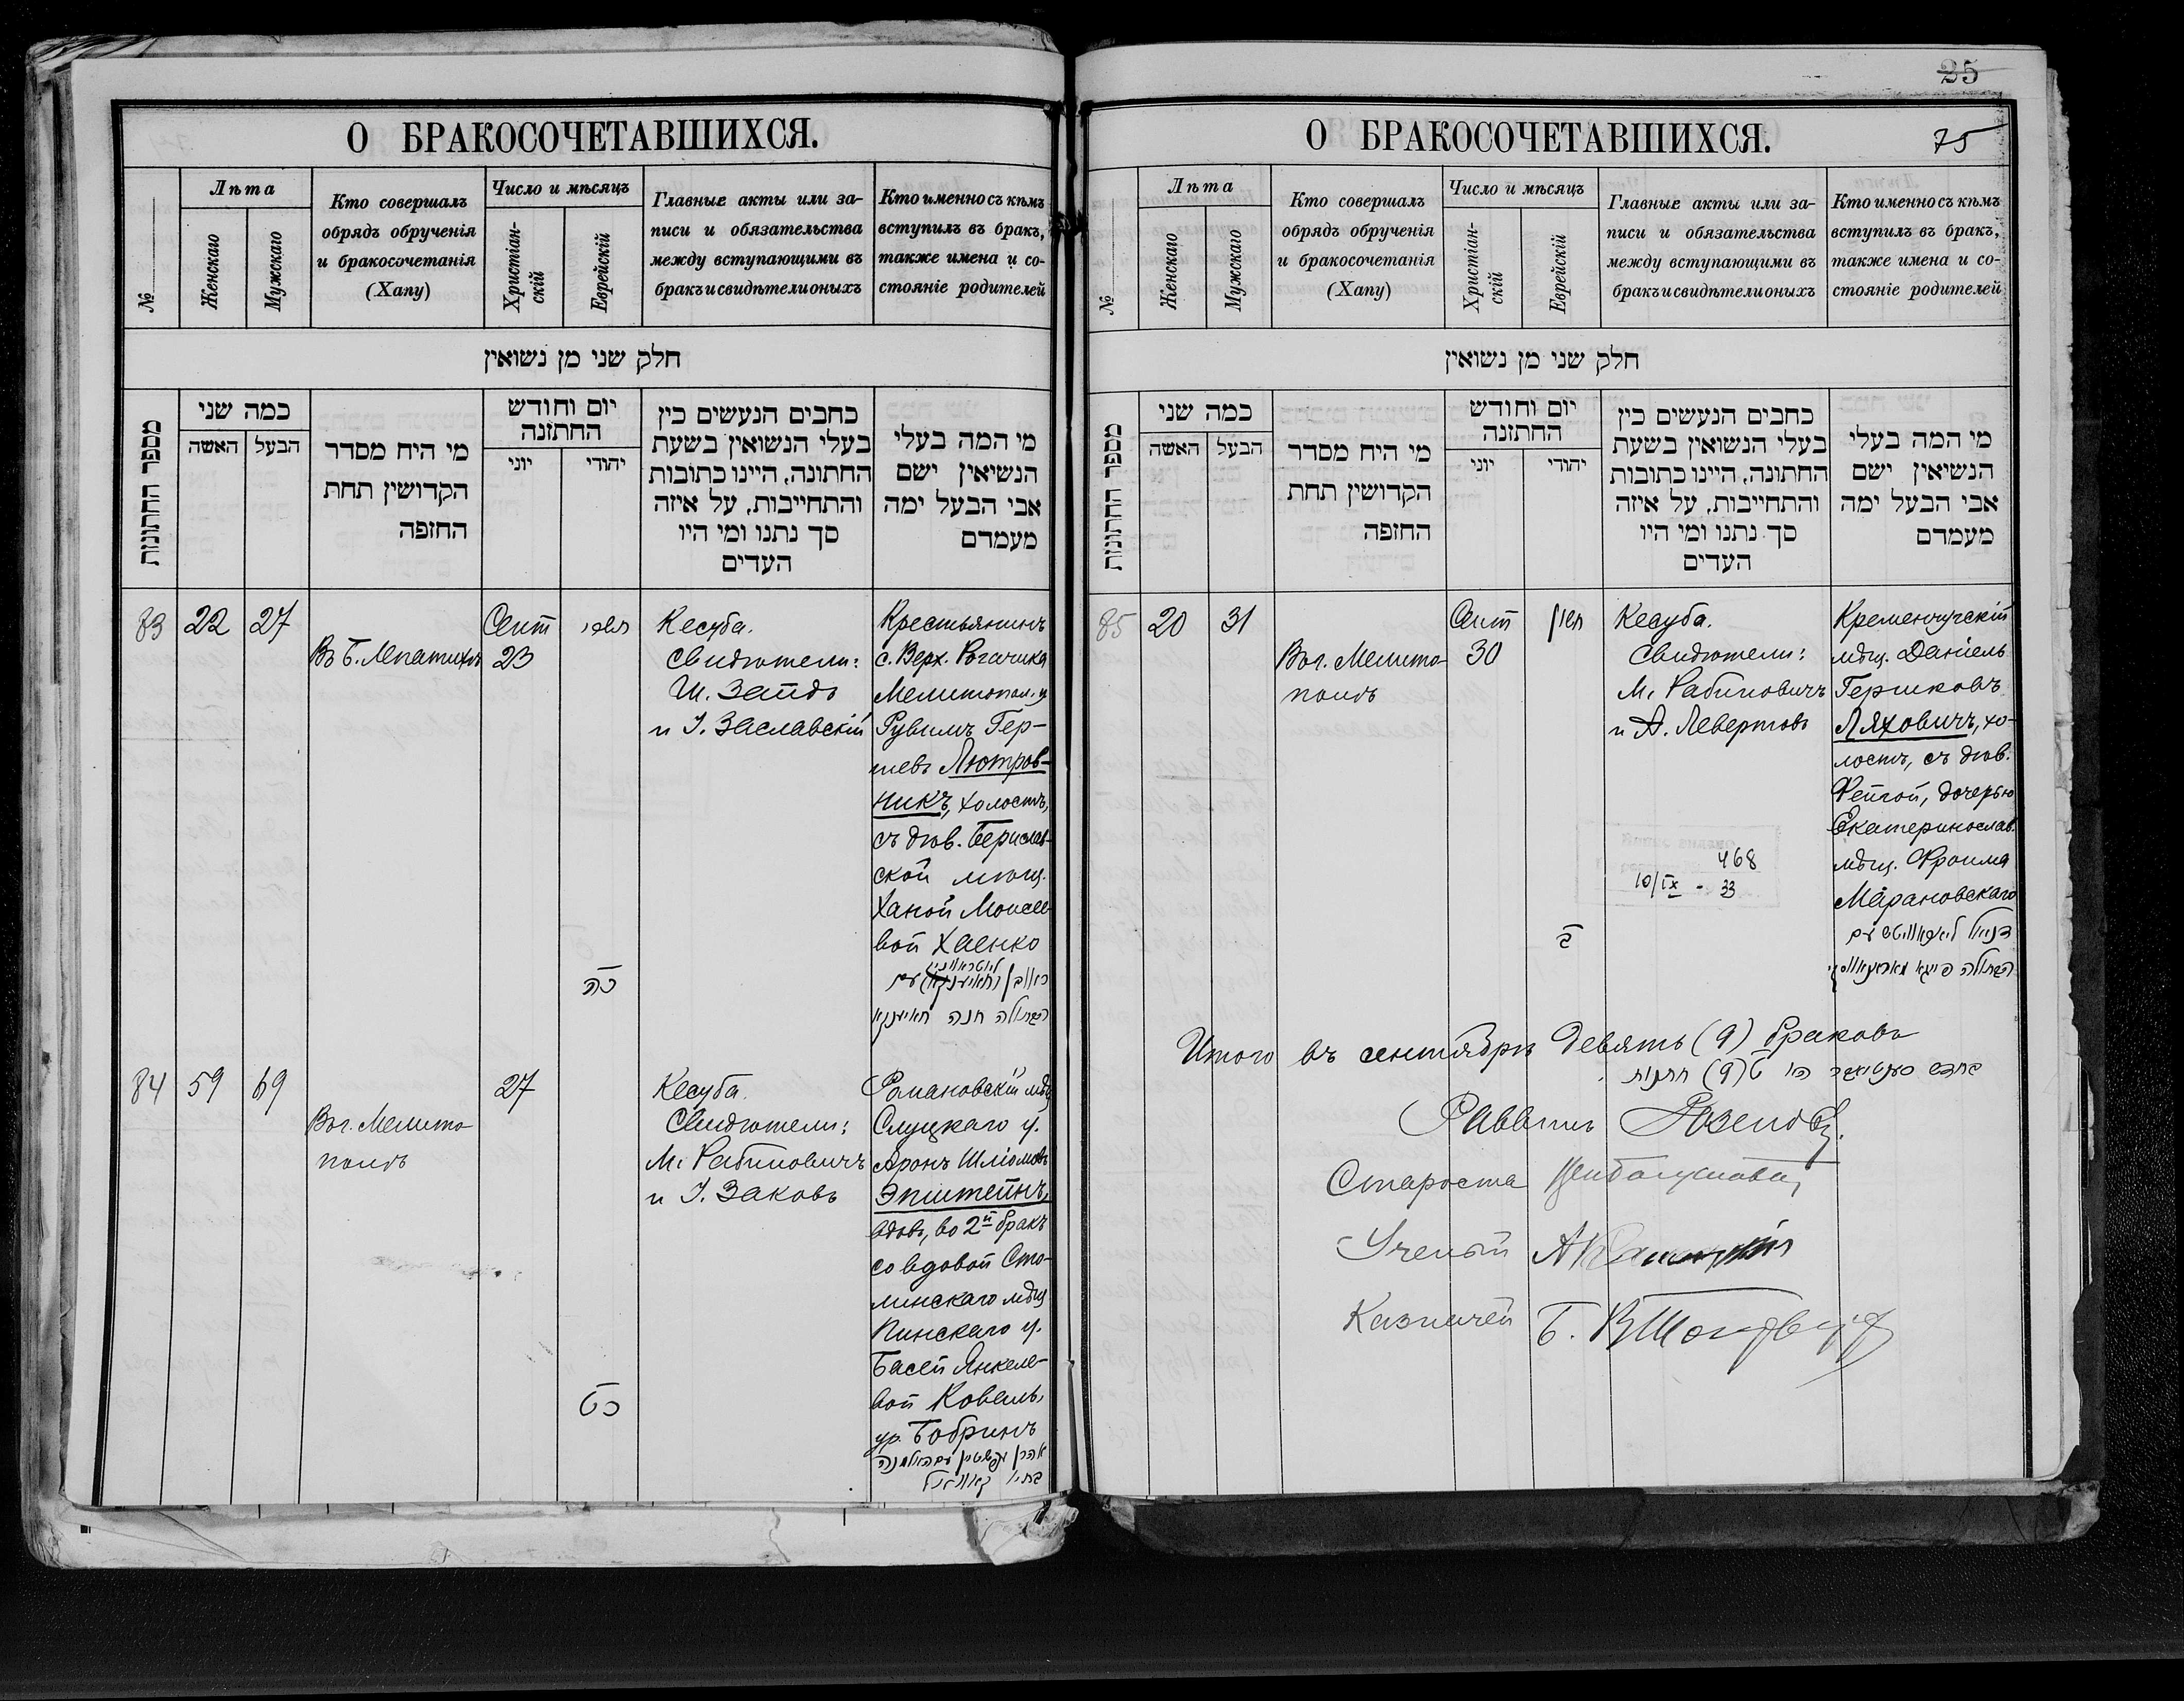 О БРАКОСОЧЕТАВШИХСЯ.
№
Лѣта
Женскаго
Мужскаго
Кто совершалъ
обрядъ обрученія
и бракосочетанія
(Хапу)
Число и мѣсяцъ
Христіан-
скій
Еврейскій
Главные акты или за-
писи и обязательства
между вступающими въ
бракъ и свидѣтели оныхъ
Кто именно съ кѣмъ
вступилъ въ бракъ,
также имена и со-
стояніе родителей
חלק שני מן נשואין
מספר החתונות
כמה שני
האשה
הבעל
מי היח מסדר
הקדושין תחת
החזפה
יום וחודש
החתזנה
יוני
יהודי
כחבים הנעשים כין
בעלי הנשואין בשעת
החתונה, היינו כתובות
והתחייבות, על איזה
סך נתנו ומי היו
העדים
מי המה בעלי
הנשיאין ישם
אבי הבעל ימה
מעמדם
83
22
27
Въ Б. Лепатихѣ
Сент
23
תשרי
כה
Кесуба.
Свидѣтели:
Ш. Зайдъ
и І. Заславскій
Крестьянинъ
с. Верх. Рогачика
Мелитопол. у
Рувимъ Гер-
шевъ Лютров-
никъ, холостъ,
съ дѣв. Берислав-
ской мѣщ.
Ханой Моисее-
вой Хаенко
הבתולה חנה חאיענקא
84
59
69
Въ г. Мелито-
полѣ
27
כט
Кесуба.
Свидѣтели:
М. Рабиновичъ
и І. Заковъ
Романовскій мѣщ
Слуцкаго у.
Аронъ Шліомовъ
Эпштейнъ,
вдовъ, во 2й бракъ
со вдовой Сто-
линскаго мѣщ
Пинскаго у.
Басей Янкеле-
вой Ковель,
ур. Бобринъ
אהרן עפשטיין עם האלמנה
25
О БРАКОСОЧЕТАВШИХСЯ.
75
№
Лѣта
Женскаго
Мужскаго
Кто совершалъ
обрядъ обрученія
и бракосочетанія
(Хапу)
Число и мѣсяцъ
Христіан-
скій
Еврейскій
Главные акты или за-
писи и обязательства
между вступающими въ
бракъ и свидѣтели оныхъ
Кто именно съ кѣмъ
вступилъ въ бракъ,
также имена и со-
стояніе родителей
חלק שני מן נשואין
מספר החתונות
כמה שני
האשה
הבעל
מי היח מסדר
הקדושין תחת
החזפה
יום וחודש
החתזנה
יוני
יהודי
כחבים הנעשים כין
בעלי הנשואין בשעת
החתונה, היינו כתובות
והתחייבות, על איזה
סך נתנו ומי היו
העדים
מי המה בעלי
הנשיאין ישם
אבי הבעל ימה
מעמדם
85
20
31
Въ г. Мелито-
полѣ
Сент
30
חשון
ב
Кесуба.
Свидѣтели:
М. Рабиновичъ
и А. Левертовъ
468
10/IX - 33
Кременчугскій
мѣщ. Даніель
Гершковъ
Ляховичъ, хо-
лостъ, съ дѣв.
Фейгой, дочерью
Екатеринослав.
мѣщ. Фроима
Марановскаго
דניאל ליאחאוויטש עם
הבתולה פייגא מאראנאווסקי
Итого въ сентябрѣ девять (9) браковъ
בחדש סענטיאבר היו ט (9) חתנות
Раввинъ
Староста
Ученый
Казначей